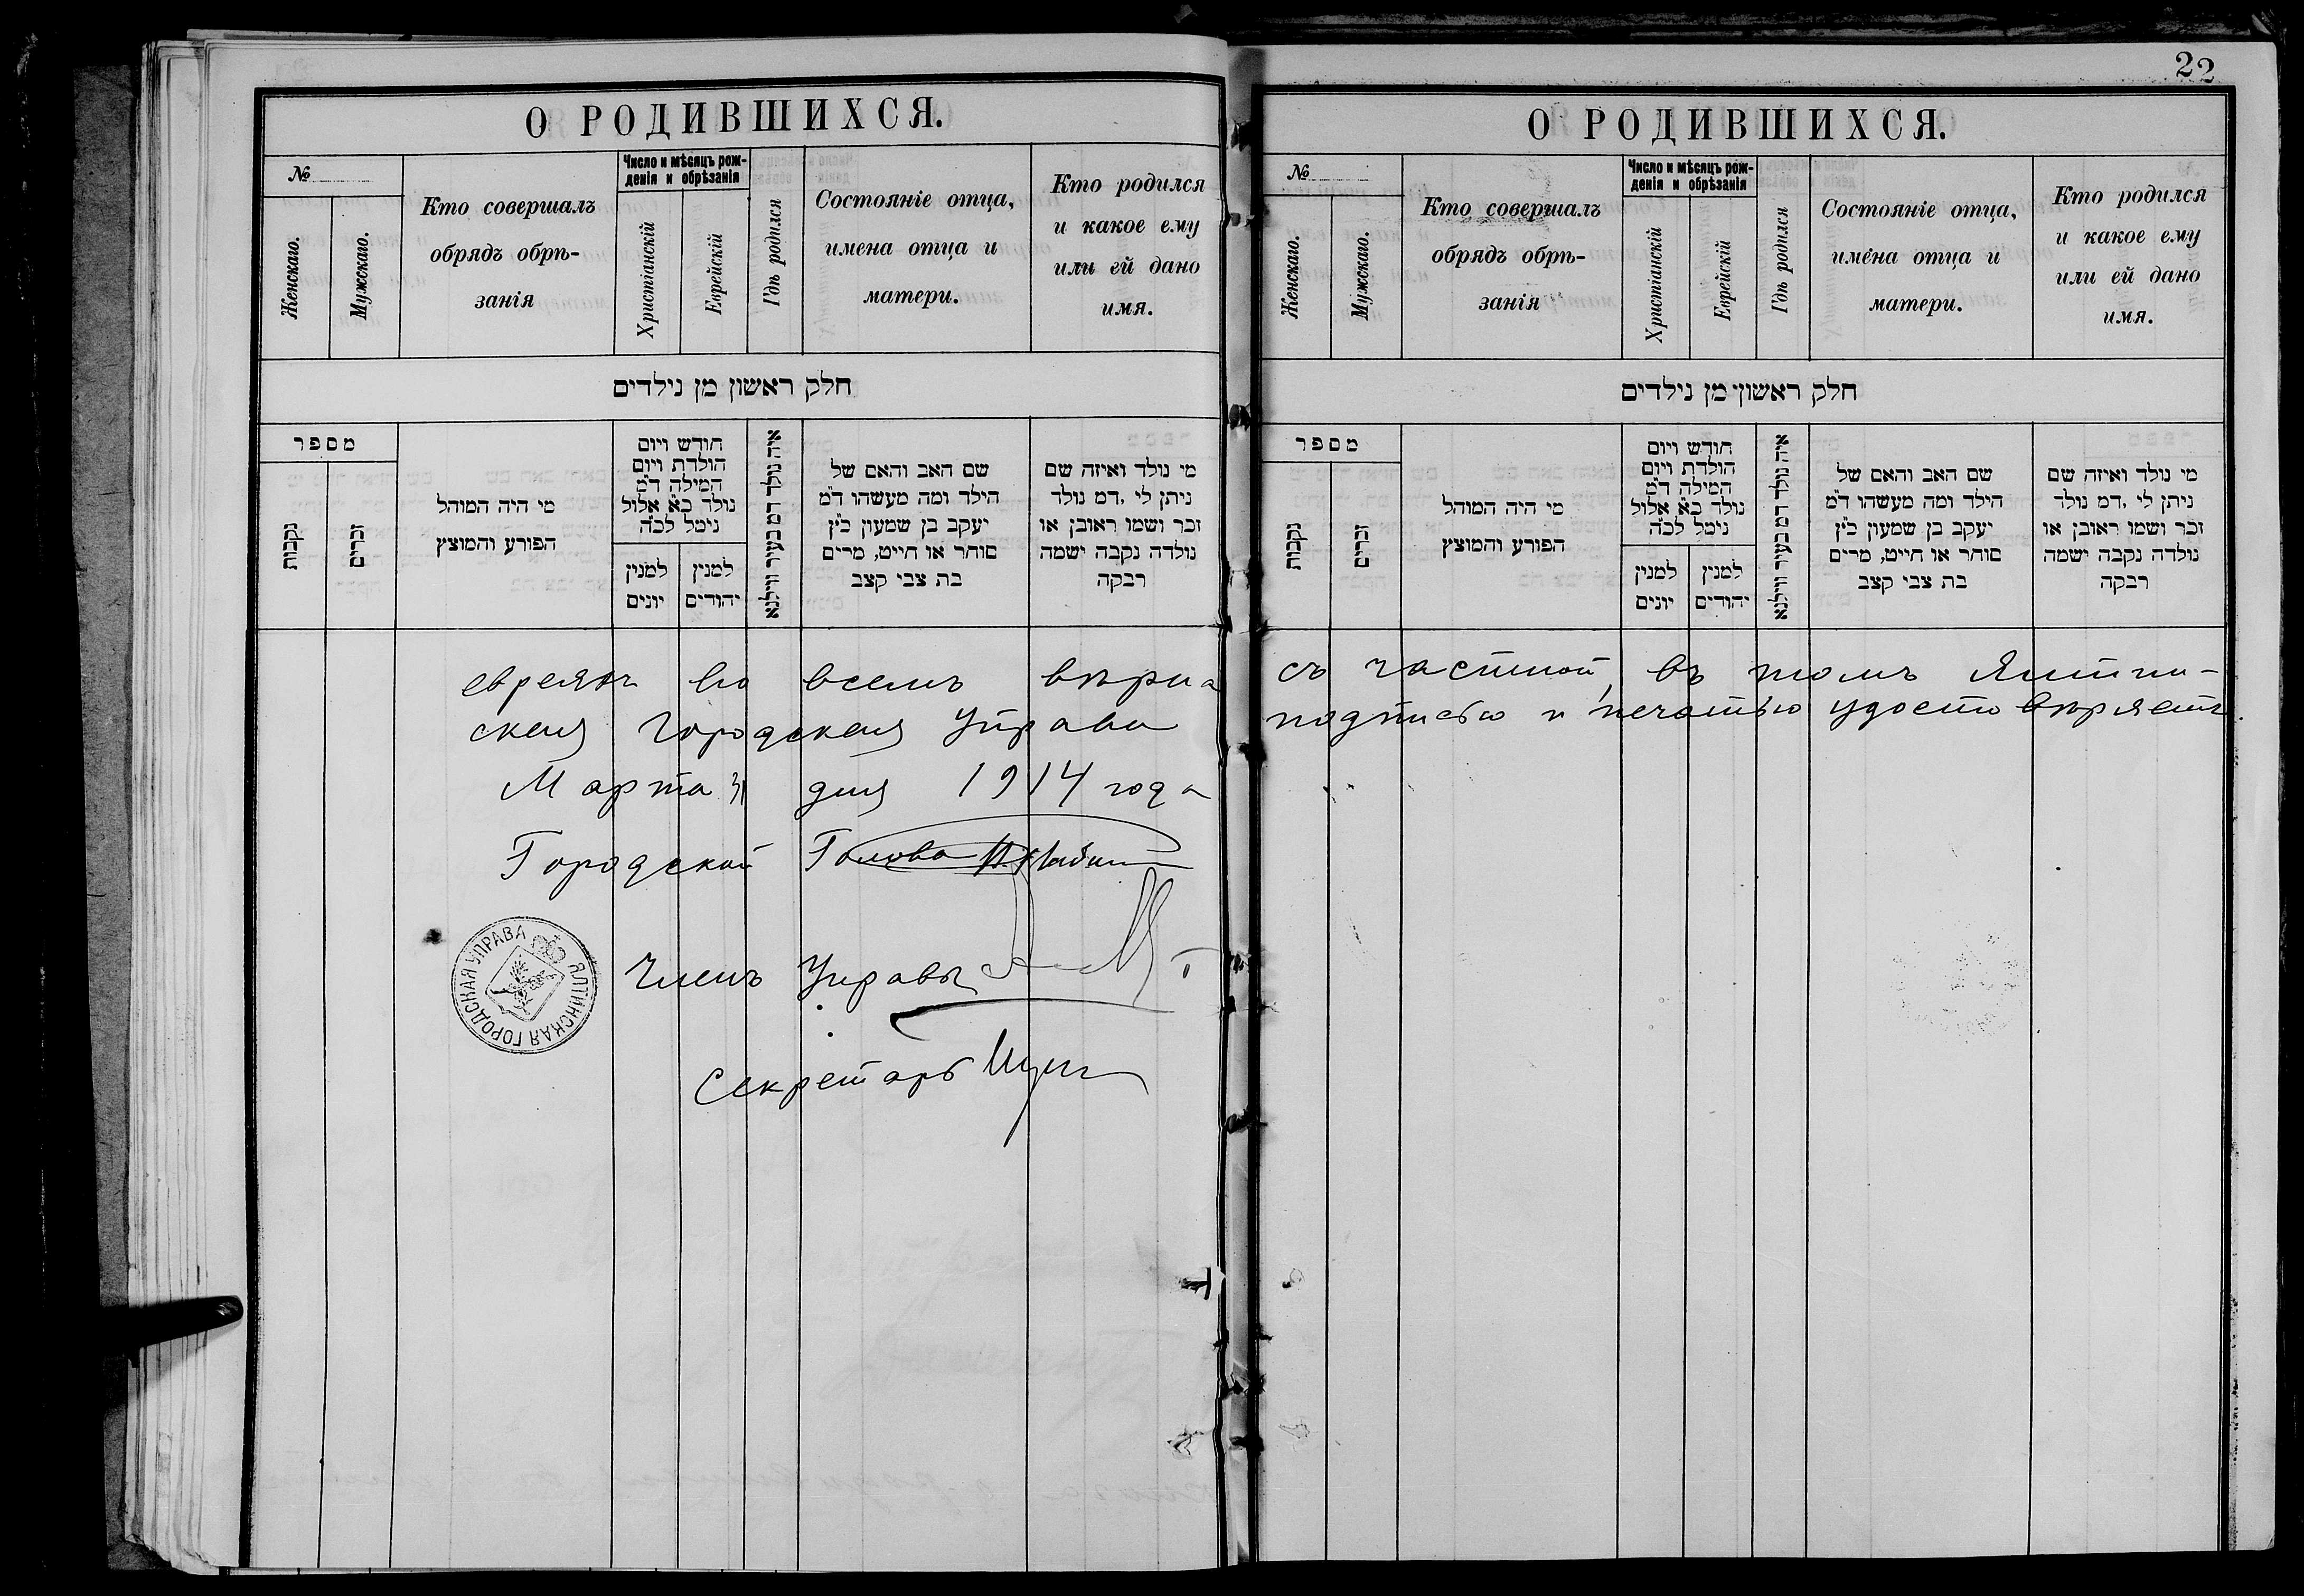 22
О РОДИВШИХСЯ.
№
Женскаго.
Мужскаго.
Кто совершалъ
обрядъ обрѣ-
занія
Число и мѣсяцъ рож-
денія и обрѣзанія
Христіанскій
Еврейскій
Гдѣ родился
Состояніе отца,
имена отца и
матери.
Кто родился
и какое ему
или ей дано
имя.
חלק ראשון מן נילדים
מספר
נקבות
זכרים
מי היה המוהל
הפורע והמוצץ
חודש ויום
הולדת ויום
המילה ד"מ
נולד כ"א אלול
נימל לכ"ה
למנין
יונים
למנין
יהודים
איה נולד דמ בעיר ווילנא
שם האב והאם של
הילד ומה מעשהו ד"מ
יעקב בן שמעון כ"ץ
סוחר או חייט, מרים
בת צבי קצב
מי נולד ואיזה שם
ניתן לי ,דמ נולד
זכר ושמו ראובן או
נולדה נקבה ישמה
רבקה
О РОДИВШИХСЯ.
№
Женскаго.
Мужскаго.
Кто совершалъ
обрядъ обрѣ-
занія
Число и мѣсяцъ рож-
денія и обрѣзанія
Христіанскій
Еврейскій
Гдѣ родился
Состояніе отца,
имена отца и
матери.
Кто родился
и какое ему
или ей дано
имя.
חלק ראשון מן נילדים
מספר
נקבות
זכרים
מי היה המוהל
הפורע והמוצץ
חודש ויום
הולדת ויום
המילה ד"מ
נולד כ"א אלול
נימל לכ"ה
למנין
יונים
למנין
יהודים
איה נולד דמ בעיר ווילנא
שם האב והאם של
הילד ומה מעשהו ד"מ
יעקב בן שמעון כ"ץ
סוחר או חייט, מרים
בת צבי קצב
מי נולד ואיזה שם
ניתן לי ,דמ נולד
זכר ושמו ראובן או
נולדה נקבה ישמה
רבקה
евреяхъ во всемъ вѣрна съ частной, въ томъ Ялтин-
ская Городская Управа подписью и печатью удостовѣряетъ
Марта 31 дня 1914 года
Городской Голова
Членъ Управы
Секретарь
ЯЛТИНСКАЯ ГОРОДСКАЯ УПРАВА